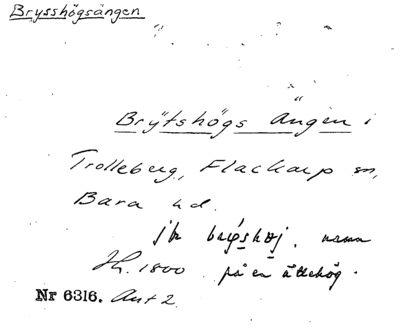 Brysshögsängen
Brÿtshögs Ängen i
Trolleberg, Flackarp sn,
Bara hd.
jfr brÿshøj, namn
Jh. 1800 på en ättehög.
Nr 6316. Ant 2.